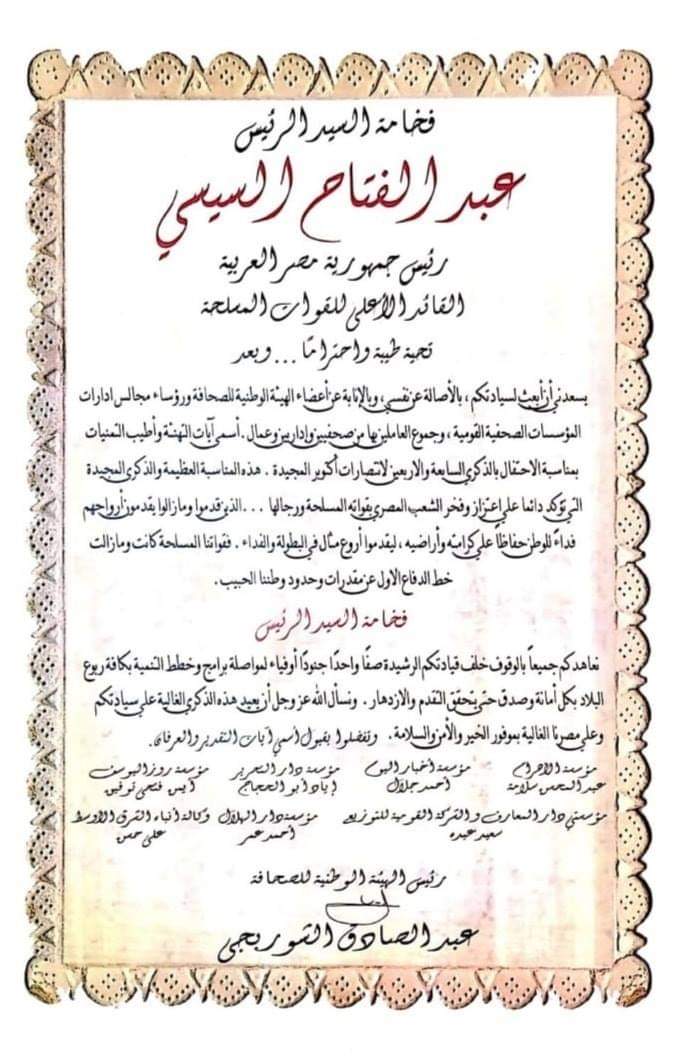 فخامة السيد الرئيس
عبد الفتاح السيسي
رئيس جمهورية مصر العربية
القائد الأعلى للقوات المسلحة
تحية طيبة واحترامًا ... وبعد
يسعدني أن أبعث لسيادتكم، بالأصالة عن نفسي، وبالإنابة عن أعضاء الهيئة الوطنية للصحافة ورؤساء مجالس ادارات
المؤسسات الصحفية القومية، وجموع العاملين بها من صحفيين وإداريين وعمال. أسمى آيات التهنئة وأطيب التمنيات
بمناسبة الاحتفال بالذكرى السابعة والاربعين لانتصارات أكتوبر المجيدة. هذه المناسبة العظيمة والذكرى المجيدة
التي تؤكد دائما على اعتزاز وفخر الشعب المصري بقواته المسلحة ورجالها ... الذين قدموا ومازالوا يقدمون أرواحهم
فداءً للوطن حفاظًا على كرامته وأراضيه، ليقدموا أروع مثال في البطولة والفداء. فقواتنا المسلحة كانت ومازالت
خط الدفاع الاول عن مقدرات وحدود وطننا الحبيب.
فخامة السيد الرئيس
نعاهدكم جميعاً بالوقوف خلف قيادتكم الرشيدة صفًا واحدًا جنودًا أوفياء لمواصلة برامج وخطط التنمية بكافة ربوع
البلاد بكل أمانة وصدق حتى يتحقق التقدم والازدهار. ونسأل الله عز وجل أن يعيد هذه الذكرى الغالية على سيادتكم
وعلى مصرنا الغالية بموفور الخير والأمن والسلامة. وتفضلوا بقبول أسمى آيات التقدير والعرفان.
مؤسسة الأهرام مؤسسة أخبار اليوم مؤسسة دار التحرير مؤسسة روز اليوسف
عبد المحسن سلامة أحمد جلال إياد أبو الحجاج أيمن فتحى توفيق
مؤسستي دار المعارف والشركة القومية للتوزيع مؤسسة دار الهلال وكالة أنباء الشرق الأوسط
سعيد عبده أحمد عمر على حسن
رئيس الهيئة الوطنية للصحافة
عبد الصادق الشوربجى